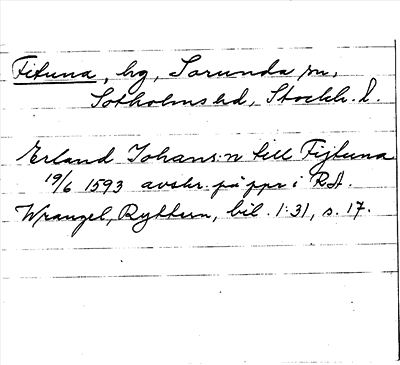 Fituna, hg, Sorunda sn,
Sotholms hd, Stockh. l.
Erland Johans:n till Fijtuna
19/6 1593 avskr. på ppr i RA.
Wrangel, Ryttern, bil. 1:31, s. 17.